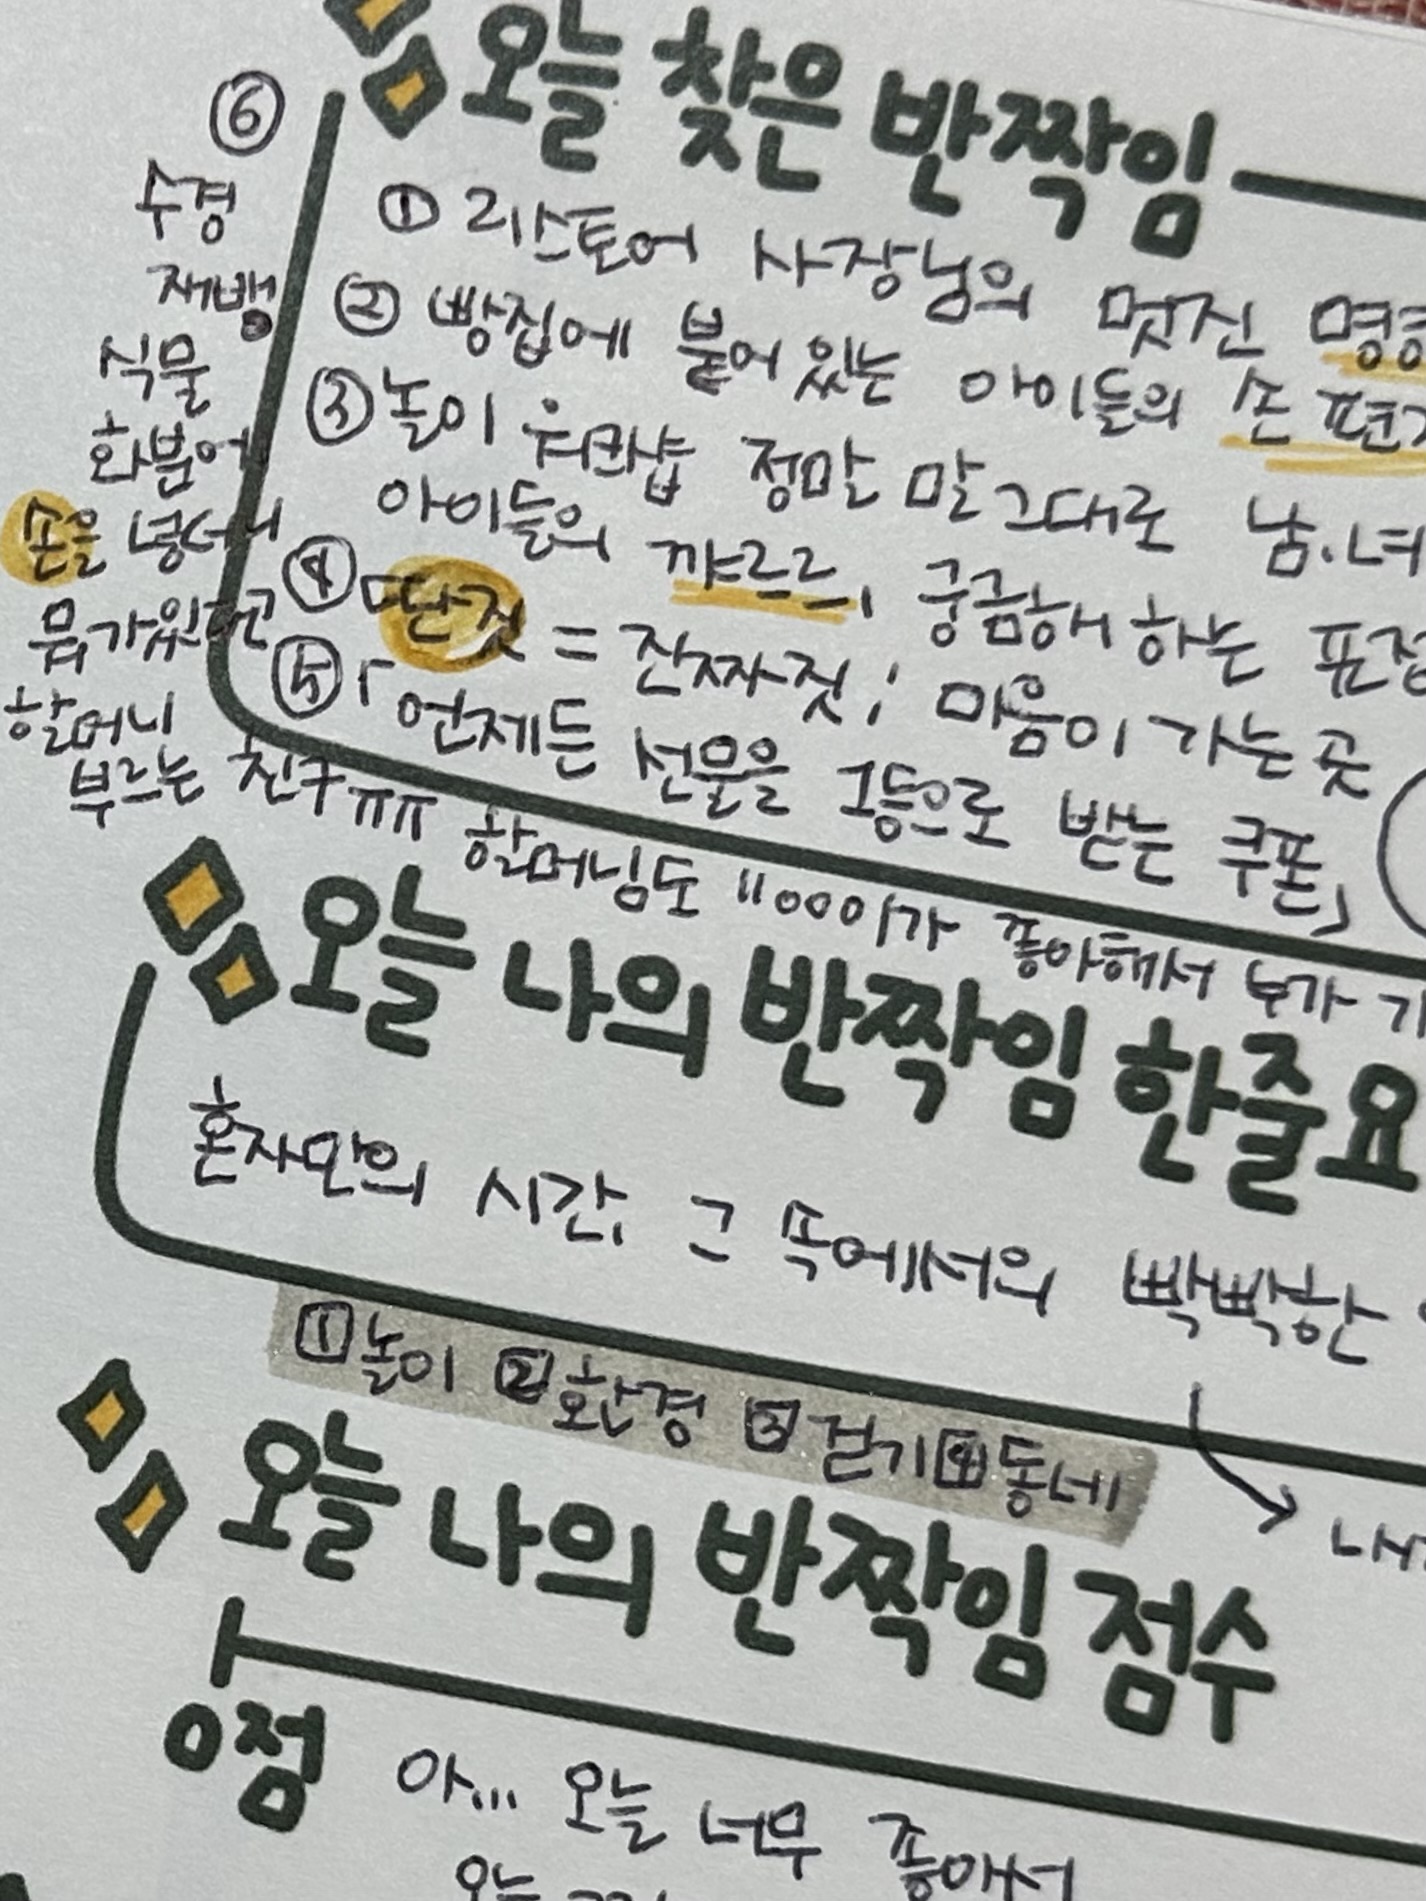 오늘 찾은 반짝임
① 리스토어 사장님의 멋진
② 빵집에 붙어 있는 아이들의 손편지
③ 놀이 워크샵 정말 말 그대로 남.녀
아이들의 꺄르르, 궁금해 하는 표정
④ 딴짓 = 진짜짓; 마음이 가는 곳
⑤ 「언제든 선물을 1등으로 받는 쿠폰」
⑥
수경
재배
식물
화분에
손을 넣더니
뭐가있다고
할머니
부르는 친구ㅠㅠ 할머님도 "ㅇㅇㅇ이가 좋아해서
오늘 나의 반짝임 한줄요
혼자만의 시간, 그 속에서의 빡빡한
1 놀이 2 환경 3 걷기 4 동네
오늘 나의 반짝임 점수
0점
아... 오늘 너무 좋아서
오늘